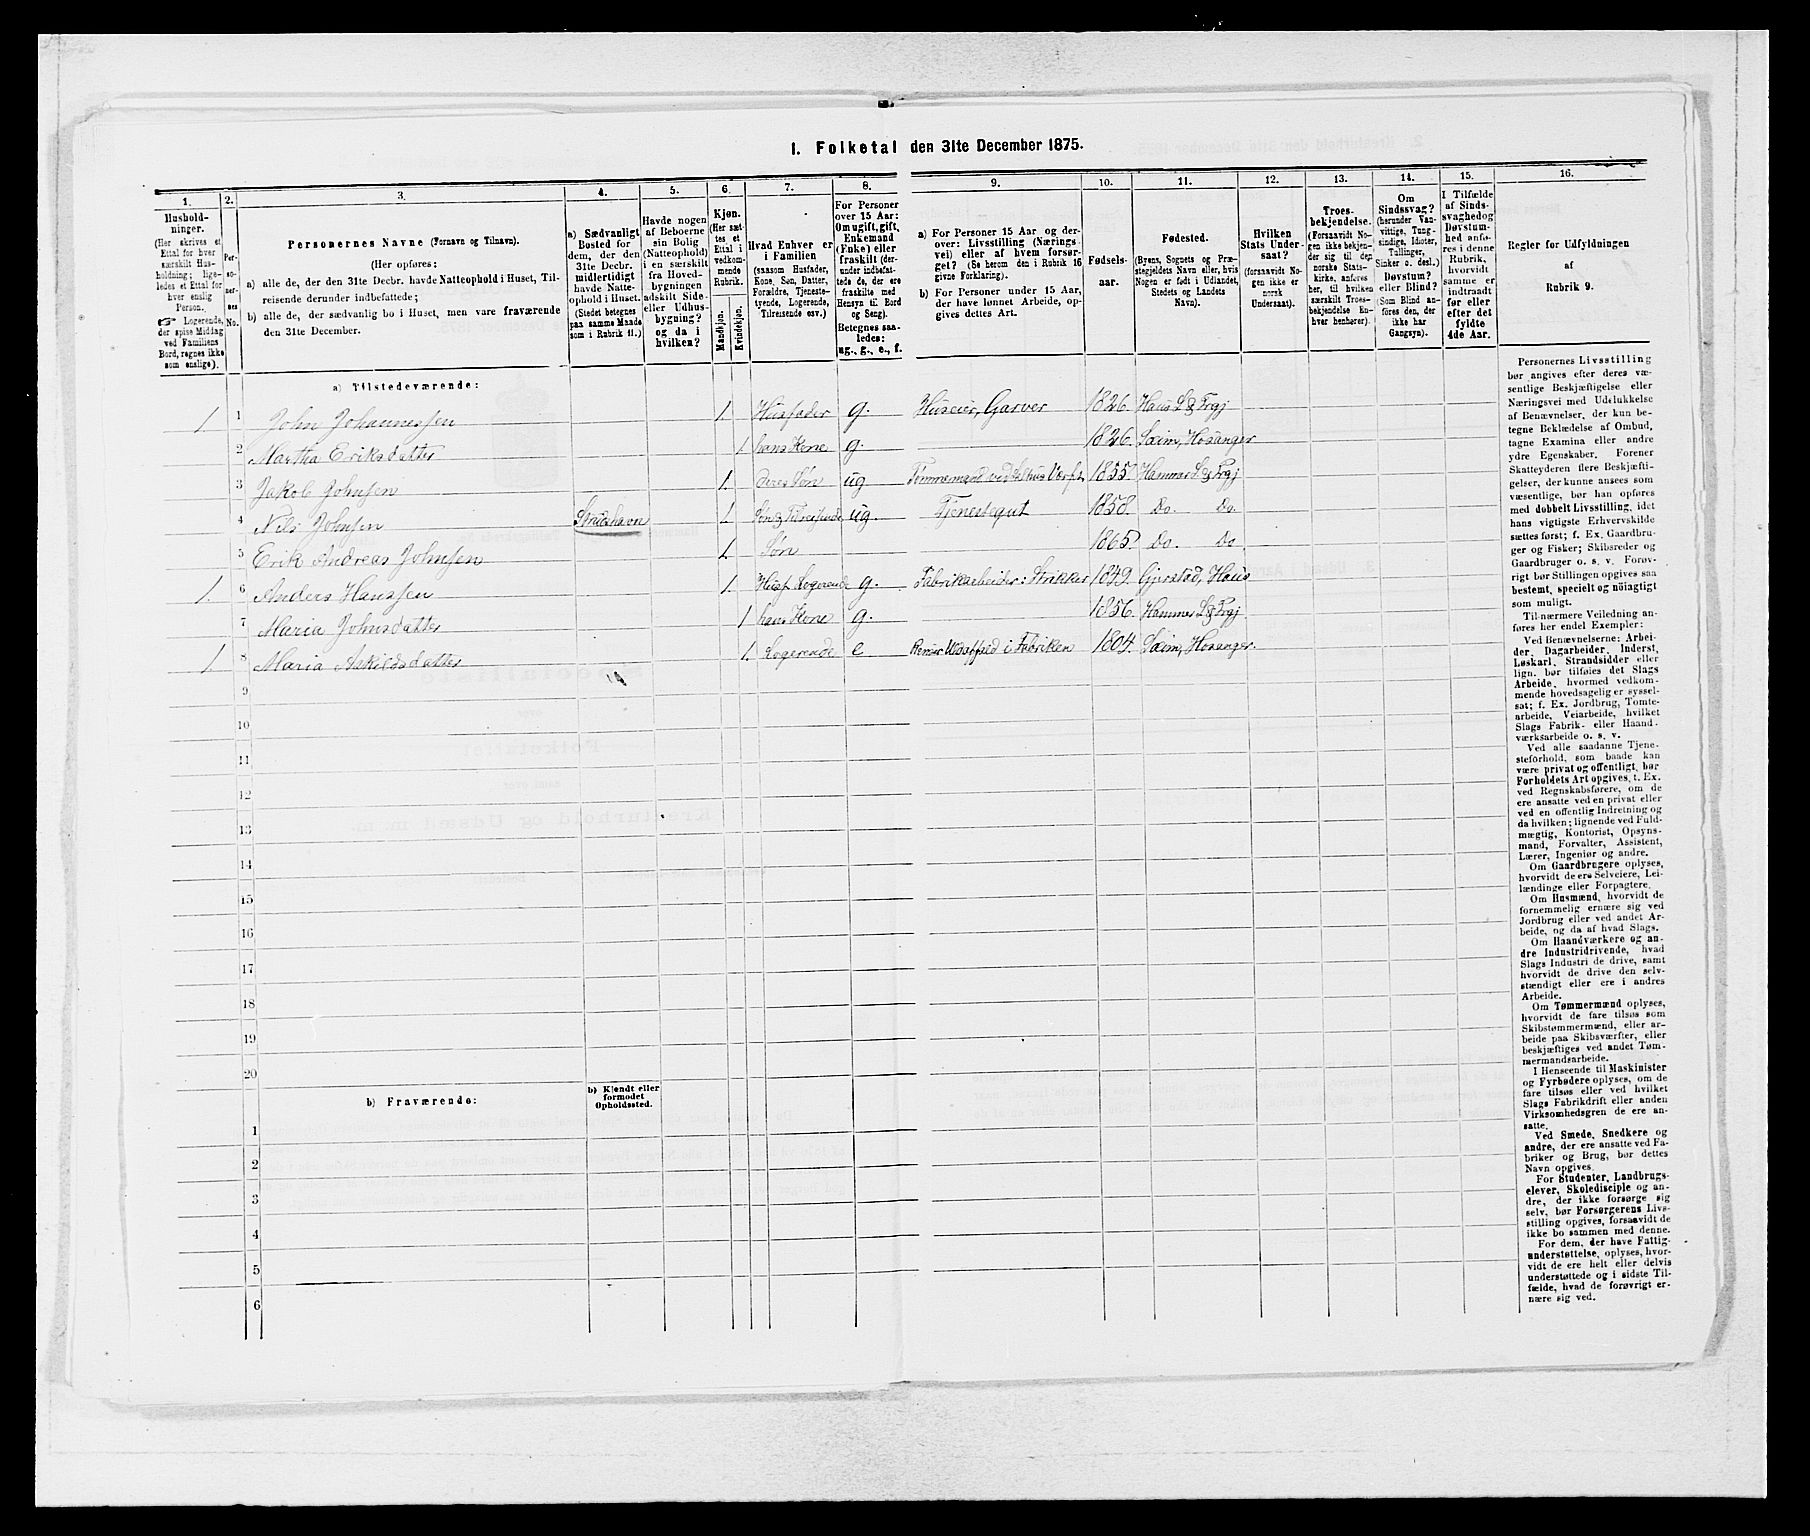 I. Folketal den 31te December 1875.
1. 2. 3. 4. 5. 6. 7. 8. 9. 10. 11. 12. 13. 14. 15. 16.
Hushold-
ninger.
(Her skrives et
Ettal for hver
særskilt Hus-
holdning; lige-
ledes et Ettal for
hver enslig
Person.
☞ Logerende,
der spise Middag
ved Familiens
Bord, regnes ikke
som enslige).
Per-
so-
ner-
nes
No.
Personernes Navne (Fornavn og Tilnavn).
(Her opføres:
a) alle de, der den 31te Decbr. havde Natteophold i Huset, Til-
reisende derunder indbefattede;
b) alle de, der sædvanlig bo i Huset, men vare fraværende
den 31te December.
a) Sædvanligt
Bosted for
dem, der den
31te Decbr.
midlertidigt
havde Natte-
ophold i Huset.
(Stedet betegnes
paa samme Maade
som i Rubrik 11.)
Havde nogen
af Beboerne
sin Bolig
(Natteophold)
i en særskilt
fra Hoved-
bygningen
adskilt Side-
eller Udhus-
bygning?
og da i
hvilken?
Kjøn.
(Her sæt-
tes et
Ettal i
vedkom-
mende
Rubrik.
Mandkjøn.
Kvindekjøn.
Hvad Enhver er
i Familien
(saasom Husfader,
Kone, Søn, Datter,
Forældre, Tjeneste-
tyende, Logerende,
Tilreisende osv.)
For Personer
over 15 Aar:
Om ugift, gift,
Enkemand
(Enke) eller
fraskilt (der-
under indbefat-
tede de, der ere
fraskilte med
Hensyn til Bord
og Seng).
Betegnes saa-
ledes:
ug., g., e., f.
a) For Personer 15 Aar og der-
over: Livsstilling (Nærings-
vei) eller af hvem forsør-
get? (Se herom den i Rubrik 16
givne Forklaring).
b) For Personer under 15 Aar,
der have lønnet Arbeide, op-
gives dettes Art.
Fødsels-
aar.
Fødested.
(Byens, Sognets og Præ-
stegjeldets Navn eller, hvis
Nogen er født i Udlandet,
Stedets og Landets
Navn).
Hvilken
Stats Under-
saat?
(forsaavidt No-
gen ikke er
norsk
Undersaat).
Troes-
bekjendelse.
(Forsaavidt No-
gen ikke bekjen-
der sig til den
norske Stats-
kirke, anføres
her, til hvilken
særskilt Troes-
bekjendelse En-
hver henhører).
Om
Sindssvag?
(herunder Van-
vittige, Tung-
sindige, Idioter,
Tullinger,
Sinker o. desl.)
Døvstum?
eller Blind?
(Som Blind an-
føres den, der
ikke har
Gangsyn).
I Tilfælde
af Sinds-
svaghed og
Døvstum-
hed anfø-
res i denne
Rubrik,
hvorvidt
samme er
indtraadt
før eller
efter det
fyldte
4de Aar.
Regler for Udfyldningen
af
Rubrik 9.
a) Tilstedeværende:
1 1 John Johannessen 1. Husfader g. Huseier, Garver 1826. Haus L & Frgj
2 Martha Eriksdatter 1 hans Kone g. 1826. Sæim, Hosanger
3 Jakob Johnsen 1. Deres Søn ug 1855. Hammer L & Frgj
4 Nils Johnsen 1. ug. Tjenestegut 1858. Do. Do.
5 Erik Andreas Johnsen 1. Søn 1865. Do. Do.
1. 6 Anders Hanssen 1. Husf. Logerende g. Fabrikarbeider: Strikker 1849. Gjerstad, Haus
7 Maria Johnsdatter 1 hans Kone g. 1856. Hammer L & Frgj
1 8 Maria Askildsdatter 1. Logerende e i Fabriken 1804. Sæim, Hosanger.
9
10
11
12
13
14
15
16
17
18
19
20
b) Fraværende:
b) Kjendt eller
formodet
Opholdssted.
1
2
3
4
5
6
Personernes Livsstilling
bør angives efter deres væ-
sentlige Beskjæftigelse eller
Næringsvei med Udelukkelse
af Benævnelser, der kun be-
tegne Beklædelse af Ombud,
tagne Examina eller andre
ydre Egenskaber. Forener
Skatteyderen flere Beskjæfti-
gelser, der kunne ansees som
væsentlige, bør han opføres
med dobbelt Livsstilling, idet
hans vigtigste Erhvervskilde
sættes først; f. Ex. Gaardbru-
ger og Fisker; Skibsreder og
Gaardbruger o. s. v. Forøv-
rigt bør Stillingen opgives saa
bestemt, specielt og nöiagtigt
som muligt.
Til nærmere Veiledning an-
føres her endel Exempler:
Ved Benævnelserne: Arbei-
der, Dagarbeider, Inderst,
Løskarl, Strandsidder eller
lign. bør tilføies det Slags
Arbeide, hvormed vedkom-
mende hovedsagelig er syssel-
sat; f. Ex. Jordbrug, Tomte-
arbeide, Veiarbeide, hvilket
Slags Fabrik- eller Haand-
værksarbeide o. s. v.
Ved alle saadanne Tjene-
steforhold, som baade kan
være privat og offentligt, bør
Forholdets Art opgives, t. Ex.
ved Regnskabsførere, om de
ere ansatte ved en privat eller
ved en offentlig Indretning og
da hvilken; lignende ved Fuld-
mægtig, Kontorist, Opsyns-
mand, Forvalter, Assistent,
Lærer, Ingeniør og andre.
Om Gaardbrugere oplyses,
hvorvidt de ere Selveiere, Lei-
lændinge eller Forpagtere.
Om Husmænd, hvorvidt de
fornemmelig ernære sig ved
Jordbrug eller ved andet Ar-
beide, og da af hvad Slags.
Om Haandværkere og an-
dre Industridrivende, hvad
Slags Industri de drive, samt
hvorvidt de drive den selv-
stændigt eller ere i andres
Arbeide.
Om Tømmermænd oplyses,
hvorvidt de fare tilsøs som
Skibstømmermænd, eller ar-
beide paa Skibsværfter, eller
beskjæftiges ved andet Tøm-
mermandsarbeide.
I Henseende til Maskinister
og Fyrbødere oplyses, om de
fare tilsøs eller ved hvilket
Slags Fabrikdrift eller anden
Virksomhedsgren de ere an-
satte.
Ved Smede, Snedkere og
andre, der ere ansatte ved Fa-
briker og Brug, bør dettes
Navn opgives.
For Studenter, Landbrugs-
elever, Skoledisciple og an-
dre, der ikke forsørge sig
selv, bør Forsørgerens Livs-
stilling opgives, forsaavidt de
ikke bo sammen med denne.
For dem, der have Fattig-
understøttelse, oplyses, hvor-
vidt de ere helt eller delvis
understøttede og i sidste Til-
fælde, hvad de forøvrigt er-
nære sig ved.